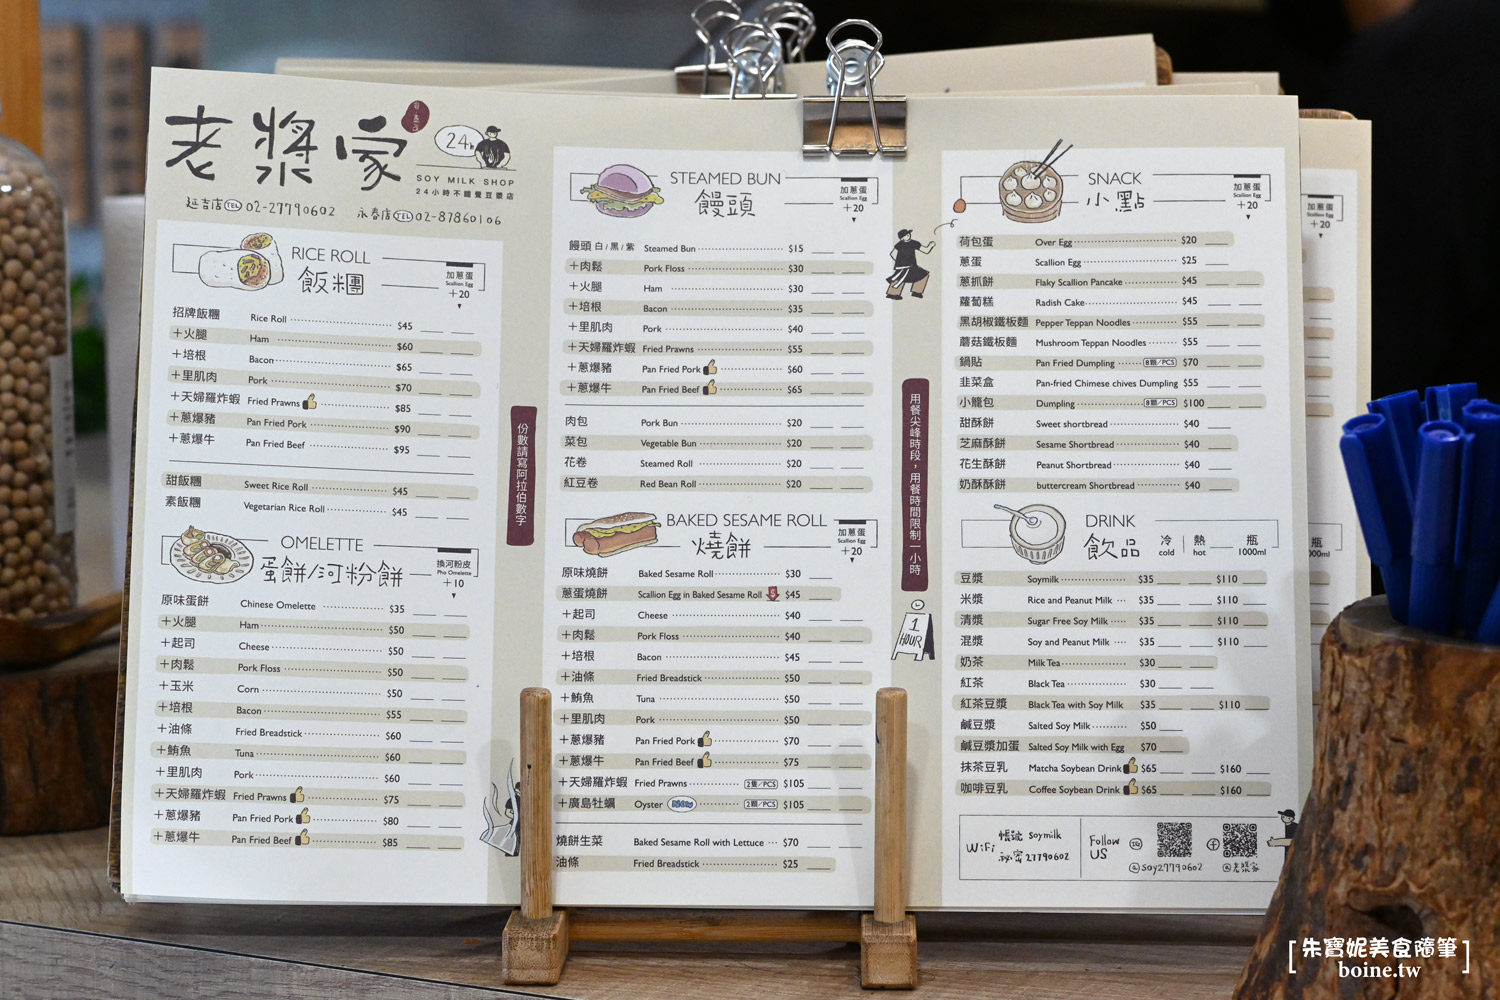 老漿家
24h
SOY MILK SHOP
24小時不睡覺豆漿店
延吉店 TEL 02-27790602 永春店 TEL 02-87860106
RICE ROLL
飯糰
加蔥蛋
Scallion Egg
+20
招牌飯糰 Rice Roll $45
+火腿 Ham $60
+培根 Bacon $65
+里肌肉 Pork $70
+天婦羅炸蝦 Fried Prawns $85
+蔥爆豬 Pan Fried Pork $90
+蔥爆牛 Pan Fried Beef $95
甜飯糰 Sweet Rice Roll $45
素飯糰 Vegetarian Rice Roll $45
OMELETTE
蛋餅/河粉餅
換河粉皮
Pho Omelette
+10
原味蛋餅 Chinese Omelette $35
+火腿 Ham $50
+起司 Cheese $50
+肉鬆 Pork Floss $50
+玉米 Corn $50
+培根 Bacon $55
+油條 Fried Breadstick $60
+鮪魚 Tuna $60
+里肌肉 Pork $60
+天婦羅炸蝦 Fried Prawns $75
+蔥爆豬 Pan Fried Pork $80
+蔥爆牛 Pan Fried Beef $85
份數請寫阿拉伯數字
STEAMED BUN
饅頭
加蔥蛋
Scallion Egg
+20
饅頭 白/黑/紫 Steamed Bun $15
+肉鬆 Pork Floss $30
+火腿 Ham $30
+培根 Bacon $35
+里肌肉 Pork $40
+天婦羅炸蝦 Fried Prawns $55
+蔥爆豬 Pan Fried Pork $60
+蔥爆牛 Pan Fried Beef $65
肉包 Pork Bun $20
菜包 Vegetable Bun $20
花卷 Steamed Roll $20
紅豆卷 Red Bean Roll $20
BAKED SESAME ROLL
燒餅
加蔥蛋
Scallion Egg
+20
原味燒餅 Baked Sesame Roll $30
蔥蛋燒餅 Scallion Egg in Baked Sesame Roll $45
+起司 Cheese $40
+肉鬆 Pork Floss $40
+培根 Bacon $45
+油條 Fried Breadstick $50
+鮪魚 Tuna $50
+里肌肉 Pork $50
+蔥爆豬 Pan Fried Pork $70
+蔥爆牛 Pan Fried Beef $75
+天婦羅炸蝦 Fried Prawns 2隻/PCS $105
+廣島牡蠣 Oyster New 2顆/PCS $105
燒餅生菜 Baked Sesame Roll with Lettuce $70
油條 Fried Breadstick $25
用餐尖峰時段,用餐時間限制一小時
1
HOUR
SNACK
小點
加蔥蛋
Scallion Egg
+20
荷包蛋 Over Egg $20
蔥蛋 Scallion Egg $25
蔥抓餅 Flaky Scallion Pancake $45
蘿蔔糕 Radish Cake $45
黑胡椒鐵板麵 Pepper Teppan Noodles $55
蘑菇鐵板麵 Mushroom Teppan Noodles $55
鍋貼 Pan Fried Dumpling 8顆/PCS $70
韭菜盒 Pan-fried Chinese chives Dumpling $55
小籠包 Dumpling 8顆/PCS $100
甜酥餅 Sweet shortbread $40
芝麻酥餅 Sesame Shortbread $40
花生酥餅 Peanut Shortbread $40
奶酥酥餅 buttercream Shortbread $40
DRINK
飲品
冷 cold 熱 hot 瓶 1000ml
豆漿 Soymilk $35 $110
米漿 Rice and Peanut Milk $35 $110
清漿 Sugar Free Soy Milk $35 $110
混漿 Soy and Peanut Milk $35 $110
奶茶 Milk Tea $30
紅茶 Black Tea $30
紅茶豆漿 Black Tea with Soy Milk $35 $110
鹹豆漿 Salted Soy Milk $50
鹹豆漿加蛋 Salted Soy Milk with Egg $70
抹茶豆乳 Matcha Soybean Drink $65 $160
咖啡豆乳 Coffee Soybean Drink $65 $160
WiFi 帳號 soymilk
祕密 27790602
Follow US
@soy27790602
@老漿家
加蔥蛋
Scallion Egg
+20
瓶
000ml
[朱寶妮美食隨筆]
boine.tw